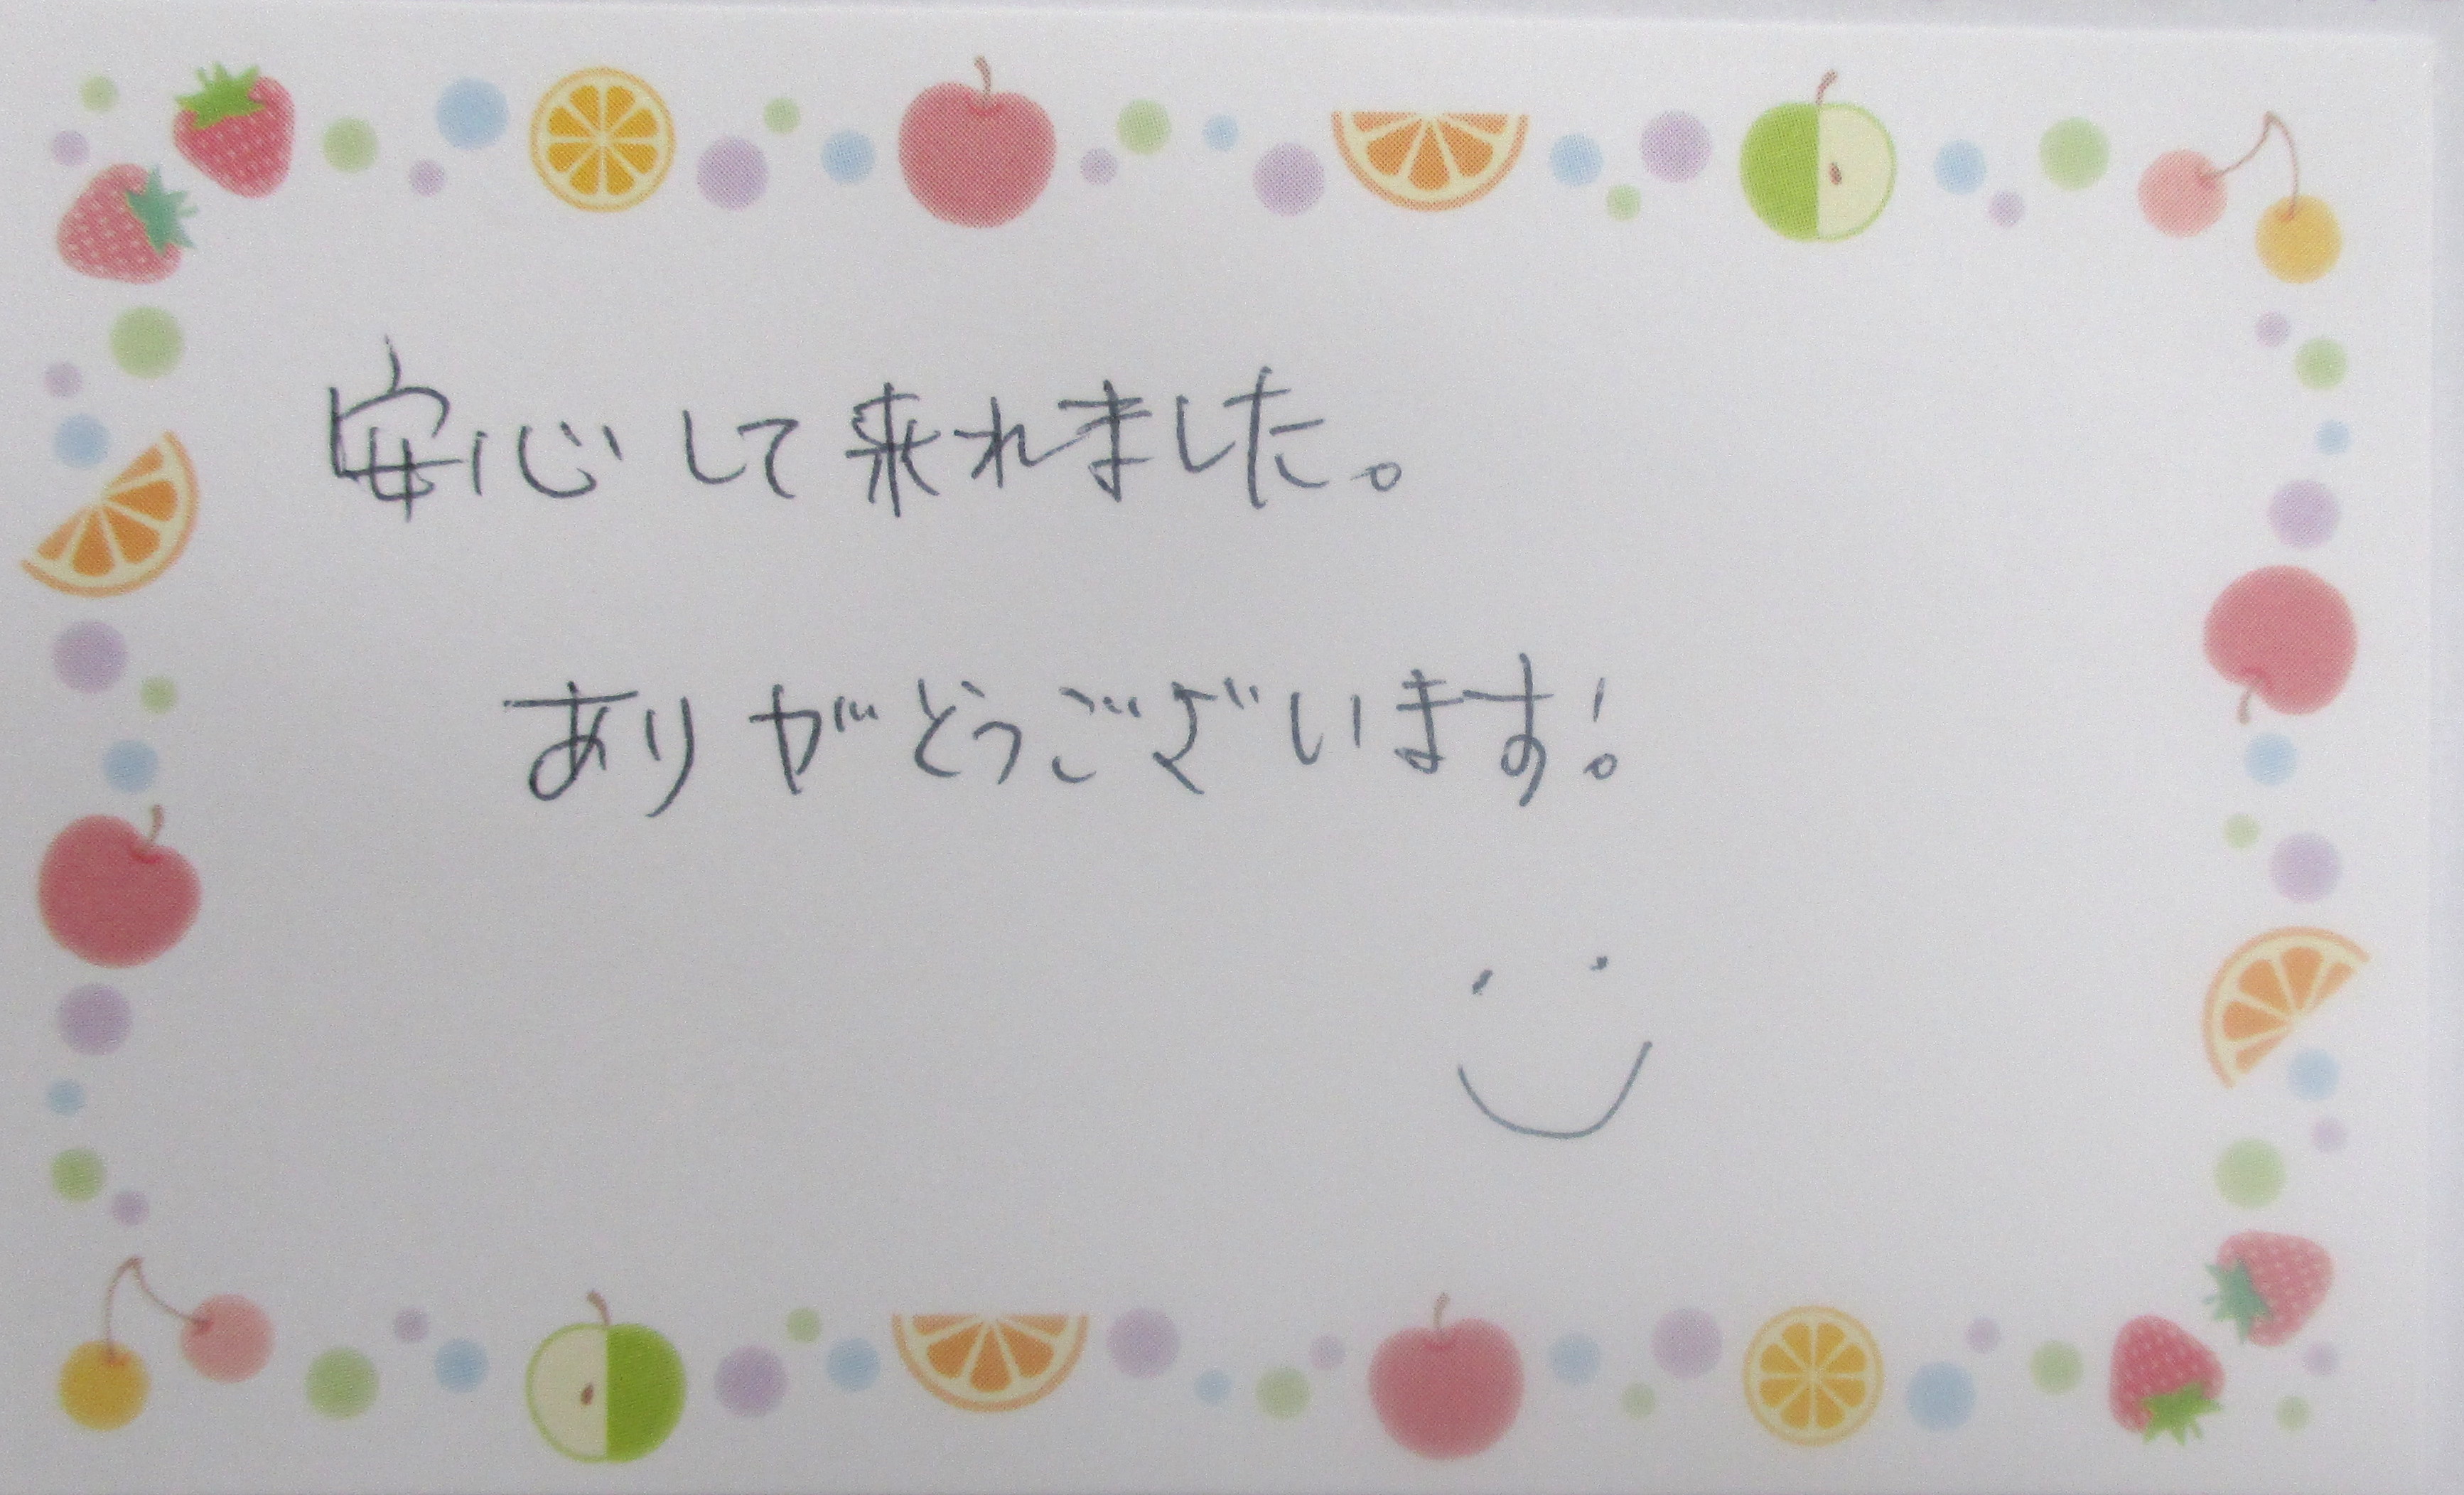 安心して来れました。
ありがどうございます!